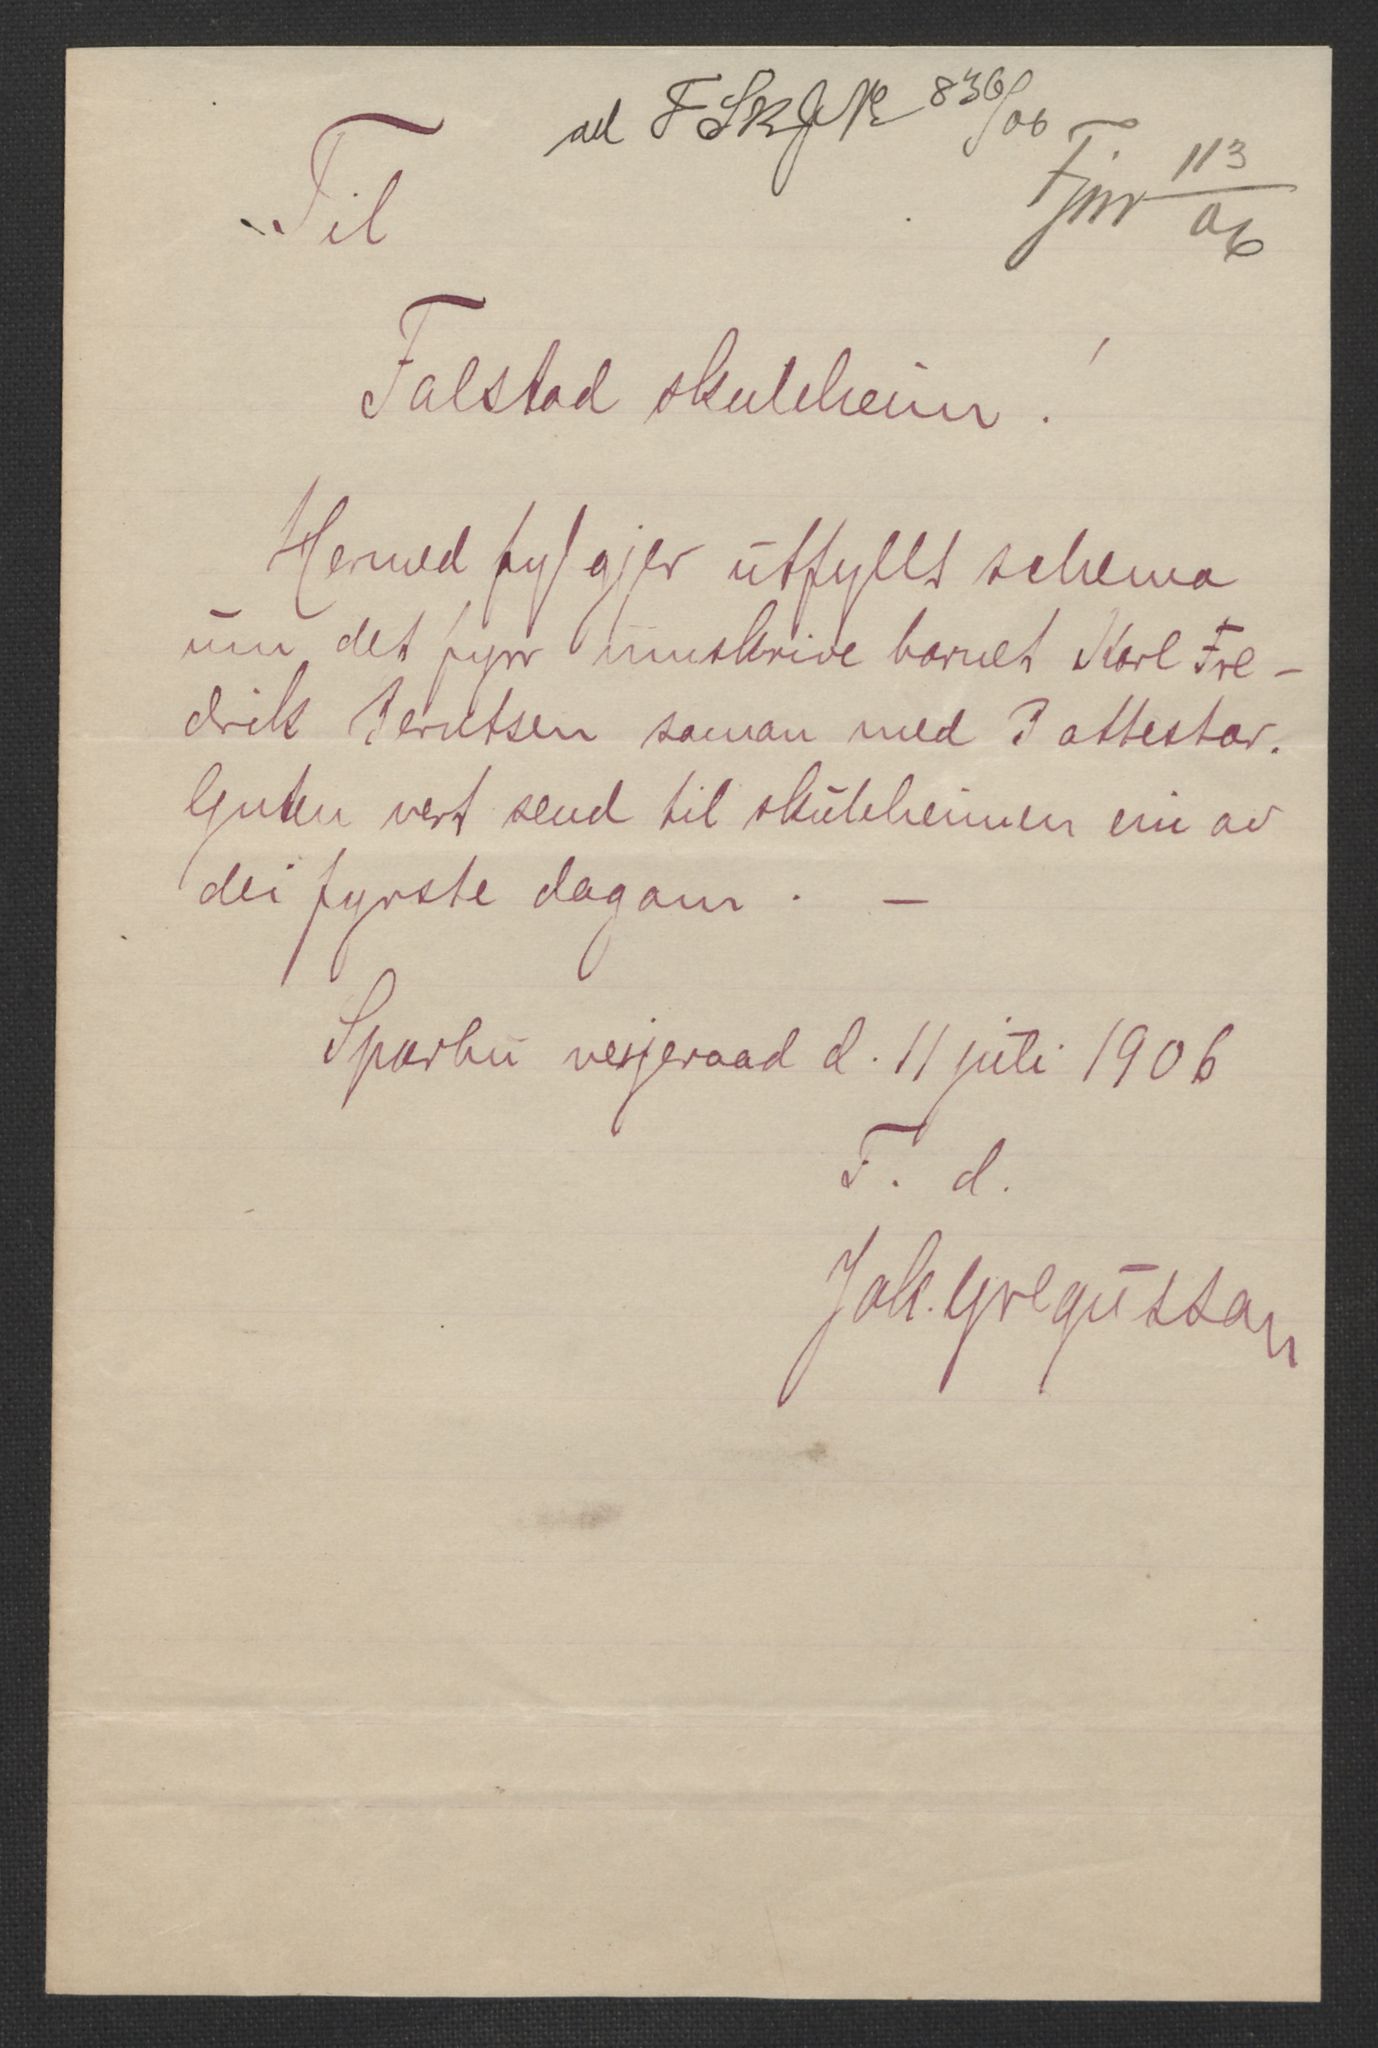 ad FSkJN 836/06
Fjnr 113/06
Til
Falstad skuleheim!
Hermed fylgjer utfyllt schema
um det fyrr umskrive barnet Karl Fre-
drik Berntsen saman med 3 attestar.
Guten vert send til skuleheimen ein av
dei fyrste dagom. —
Sparbu verjeraad d. 11 juli 1906
F. d.
Jak. Gregussan